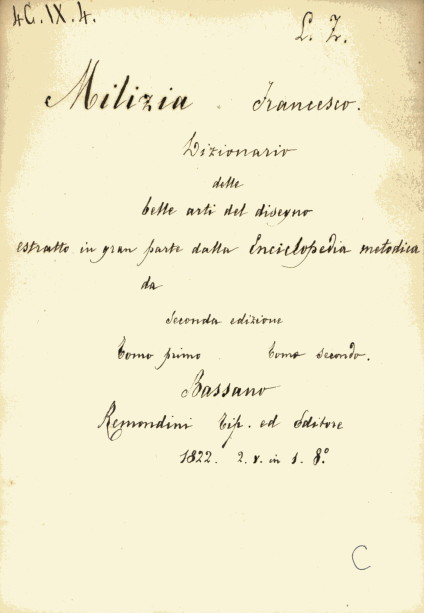 4G.IX.4.
L. Z.
Milizia Francesco.
Dizionario
delle
belle arti del disegno
estratto in gran parte dalla Enciclopedia metodica
da
Seconda edizione
Tomo primo Tomo secondo.
Bassano
Remondini Tip. ed Editore
1822. 2. v. in 1. 8°
C